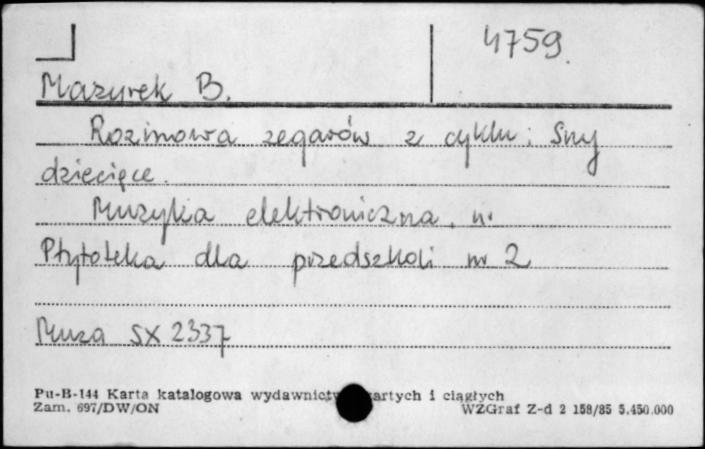 4759
Mazurek B.
Rozmowa zegarów z cyklu: Sny
dziecięce.
Muzyka elektroniczna. W:
Płytoteka dla przedszkoli nr 2
Muza SX 2337
Pu-B-144 Karta katalogowa wydawnictw zwartych i ciągłych
Zam. 697/DW/ON
WZGraf Z-d 2 158/85 5.450.000